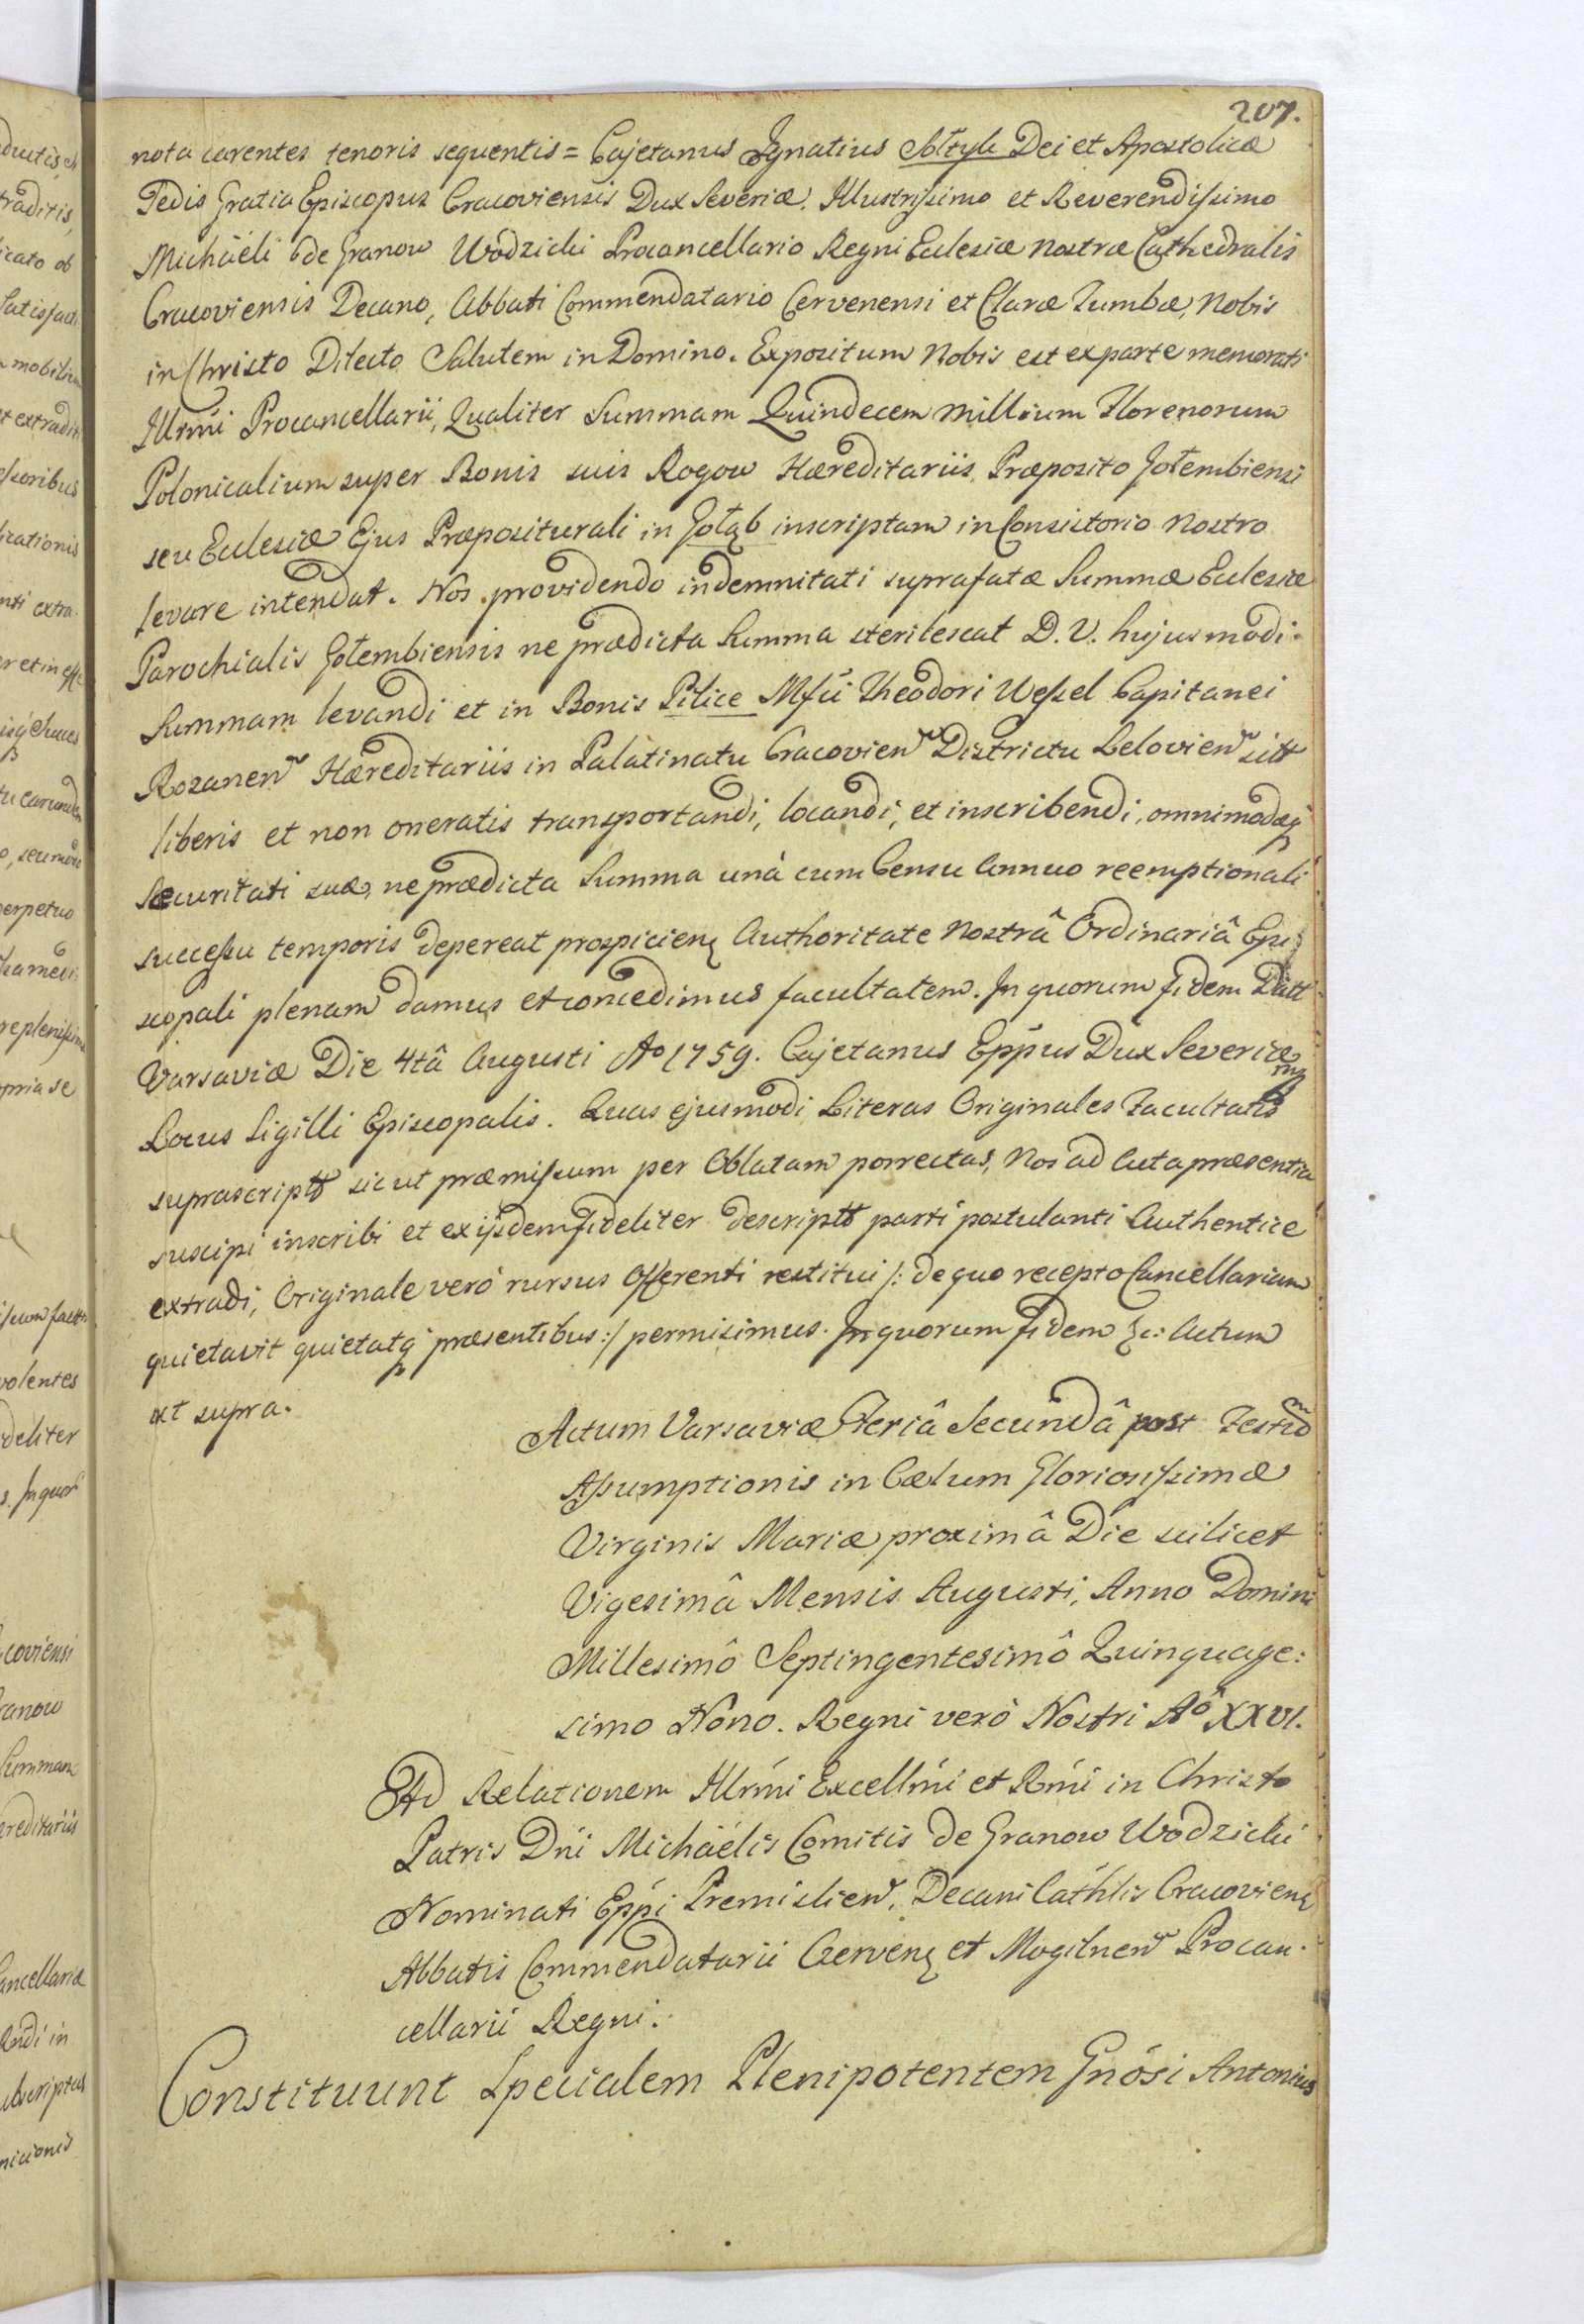 207.
nota carentes tenoris sequentis = Cajetanus Ignatius Sołtyk Dei et Apostolicæ
Sedis Gratia Episcopus Cracoviensis Dux Severiæ. Illustrissimo et Reverendissimo
Michäeli de Granow Wodzicki Procancellario Regni Eclesiæ nostræ Cathedralis
Cracoviensis Decano, Abbati Commendatario Cervenensi et Claræ Tumbæ, Nobis
in Christo Dilecto Salutem in Domino. Expositum Nobis est ex parte memorati
Illrmi Procancellarii, Qualiter Summam Quindecem millium Florenorum
Polonicalium super Bonis suis Rogow Hæreditariis, Præposito Gołembiensi
seu Eclesiæ Ejus Præpositurali in Gołąb inscriptam in Consistorio Nostro
levare intendat. Nos providendo indemnitati suprafatæ Summæ Eclesiæ
Parochialis Gołembiensis ne prædicta Summa sterilescat D. V. hujusmodi
Summam levandi et in Bonis Pilice Mfci Theodori Wessel Capitanei
Rozanen Hæreditariis in Palatinatu Cracovien Districtu Lelovien sitt
liberis et non oneratis transportandi, locandi, et inscribendi, omnimodæq
Securitati suæ, ne prædicta Summa unà cum Censu Annuo reemptionali
successu temporis depereat prospiciens Authoritate Nostrâ Ordinariâ Epi
scopali plenam damus et concedimus facultatem. In quorum fidem Datt
Varsaviæ Die 4tâ Augusti Ao 1759. Cajetanus Eppus Dux Severiæ mp
Locus Sigilli Episcopalis. Quas ejusmodi Literas Originales Facultatis
suprascriptt sicut præmissum per Oblatam porrectas, Nos ad Acta præsentia
suscipi inscribi et ex ijsdem fideliter descriptt parti postulanti Authentice
extradi, Originale verò rursus Offerenti restitui /: de quo recepto Cancellariam
quietavit quietatq præsentibus :/ permisimus. In quorum fidem &c: Actum
ut supra.
Actum Varsaviæ Feriâ Secundâ post Festum
Assumptionis in Cælum Gloriosissimæ
Virginis Mariæ proximâ Die scilicet
Vigesimâ Mensis Augusti, Anno Domini
Millesimô Septingentesimô Quinquage:
simo Nôno. Regni verò Nostri Aô XXVI.
Ad Relationem Illrmi Excellmi et Rmi in Christo
Patris Dni Michäelis Comitis de Granow Wodzicki
Nominati Eppi Premislien, Decani Cathlis Cracovien
Abbatis Commendatarii Cerven et Mogilnen Procan.
cellarii Regni.
Constituunt Specialem Plenipotentem Gnosi Antonius